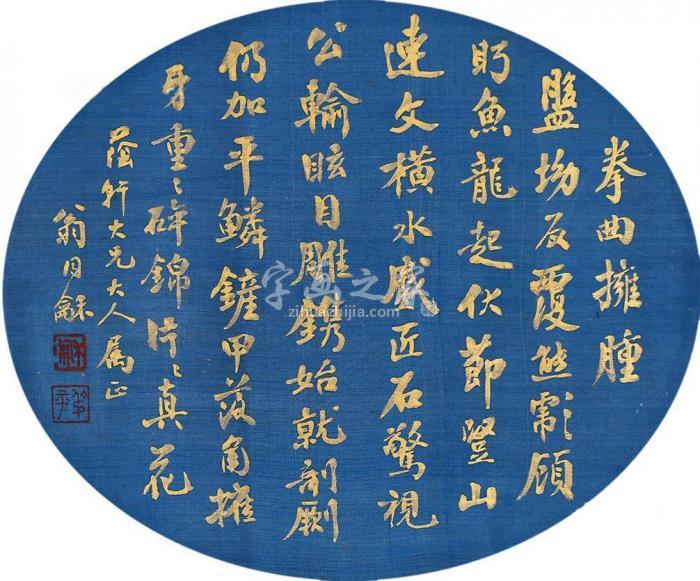 拳曲擁腫
盤坳反覆熊彪顧
盻魚龍起伏節豎山
連文橫水蹙匠石驚視
公輸眩目雕鐫始就剞劂
仍加平鱗鏟甲落角摧
牙重〻碎錦片〻真花
蔭軒大兄大人屬正
翁同龢
字画之家
zihuazhijia.com